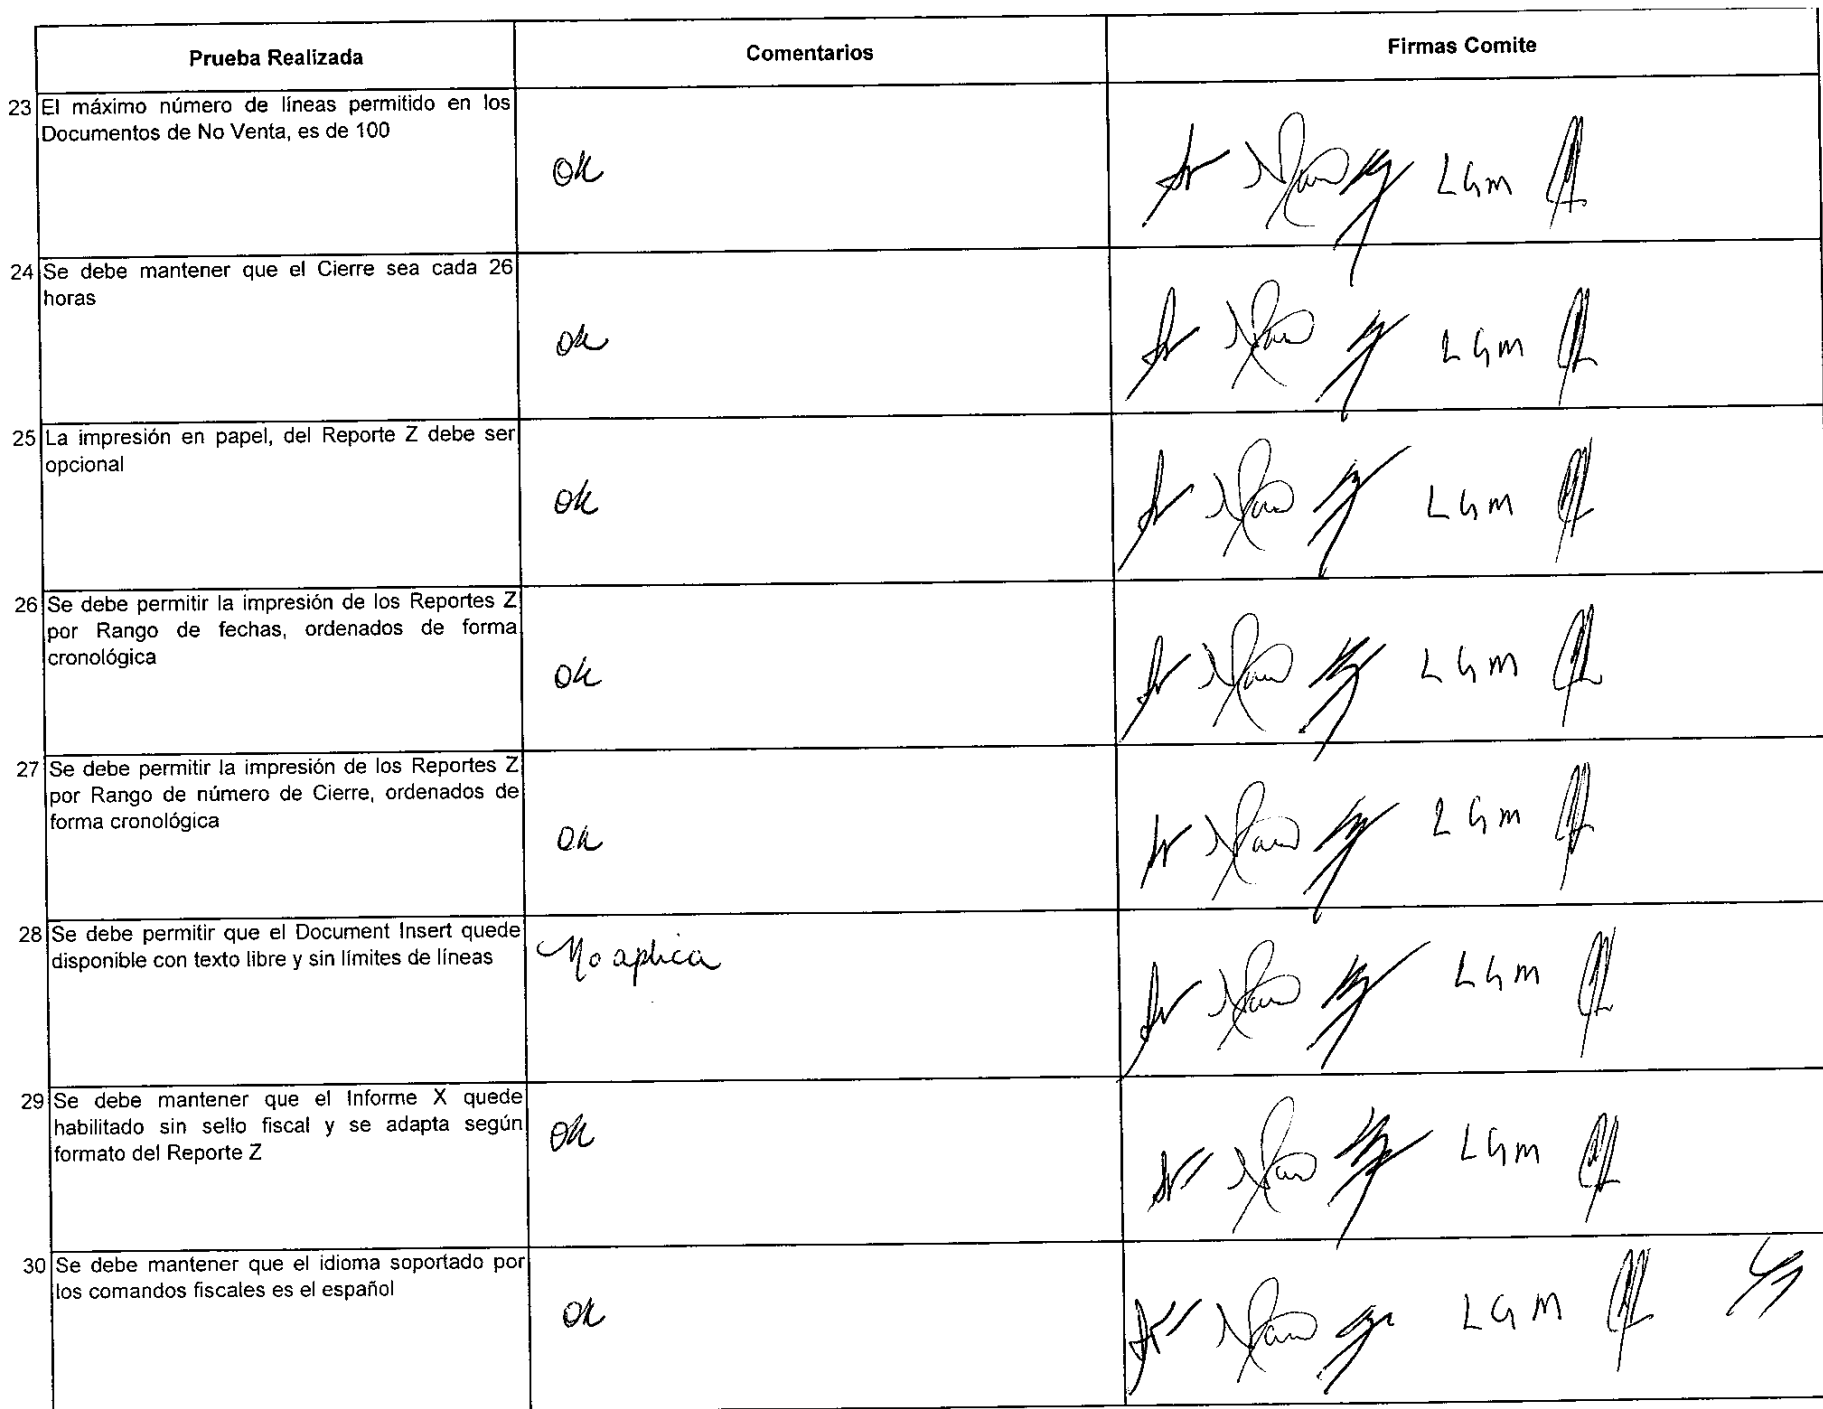 Prueba Realizada
Comentarios
Firmas Comite
23 El máximo número de líneas permitido en los
Documentos de No Venta, es de 100
Ok
LGM
24 Se debe mantener que el Cierre sea cada 26
horas
Ok
LGM
25 La impresión en papel, del Reporte Z debe ser
opcional
Ok
LGM
26 Se debe permitir la impresión de los Reportes Z
por Rango de fechas, ordenados de forma
cronológica
Ok
LGM
27 Se debe permitir la impresión de los Reportes Z
por Rango de número de Cierre, ordenados de
forma cronológica
Ok
LGM
28 Se debe permitir que el Document Insert quede
disponible con texto libre y sin límites de líneas
No aplica
LGM
29 Se debe mantener que el Informe X quede
habilitado sin sello fiscal y se adapta según
formato del Reporte Z
Ok
LGM
30 Se debe mantener que el idioma soportado por
los comandos fiscales es el español
Ok
LGM